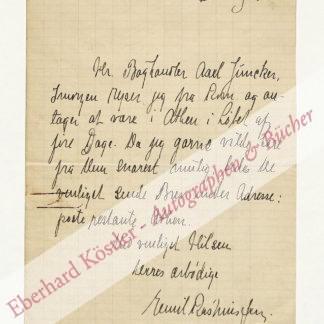 Hr. Boghandler Axel Juncker,
Imorgen rejser jeg fra Rom og an-
tager at være i Athen i Løbet af
fire Dage. Da jeg gærne vilde høre
fra Dem snarest muligt, bedes De
venligst sende Brev under Adresse:
poste restante, Athen.
Med venligst Hilsen
Deres ærbødige
Emil Rasmussen.
Eberhard Köstler - Autographen & Bücher